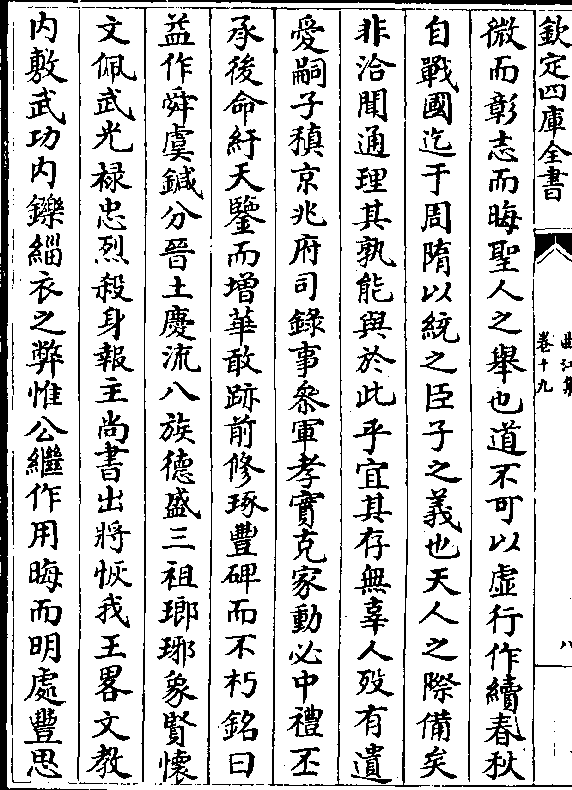 欽定四庫全書
曲江集
卷十九
八
微而彰志而晦聖人之舉也道不可以虛行作續春秋
自戰國迄于周隋以統之臣子之義也天人之際備矣
非洽聞通理其孰能與於此乎宜其存無辜人歿有遺
愛嗣子稹京兆府司錄事叅軍孝實克家動必中禮丕
承後命紆天鑒而增華敢跡前修琢豐碑而不朽銘曰
益作舜虞鍼分晉土慶流八族德盛三祖瑯琊象賢懷
文佩武光祿忠烈殺身報主尚書出將恢我王畧文教
内敷武功内鑠緇衣之弊惟公繼作用晦而明處豐思